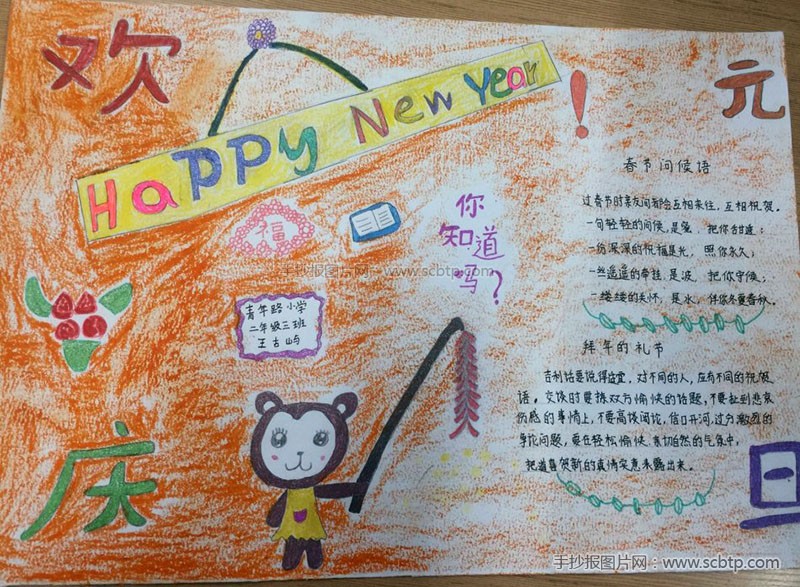 欢
元
Happy New Year!
春节问候语
过春节时亲友间都会互相来往,互相祝贺。
一句轻轻的问候,是蜜,把你甜连;
一份深深的祝福是光,照你永久;
一丝遥遥的牵挂,是波,把你守候;
一缕缕的关怀,是水,伴你冬夏春秋。
福
你
知道
吗?
手抄报图片网:www.scbtp.com
青年路小学
二年级三班
王古屿
拜年的礼节
吉利话要说得适宜,对不同的人,应有不同的祝贺
语。交谈时要拣双方愉快的话题,不要扯到悲哀
伤感的事情上,不要高谈阔论,信口开河,过分激烈的
争论问题,要在轻松愉快亲切自然的气氛中,
把道喜贺新的真情实意表露出来。
庆
旦
手抄报图片网:www.scbtp.com